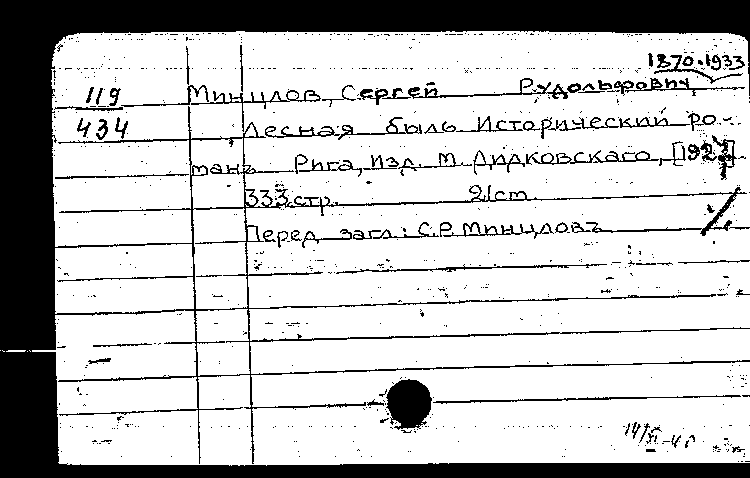 1870-1933
119 Минцлов, Сергей Рудольфович,
434 Лесная быль Исторический ро-
манъ Рига, Изд. М. Дидковскаго,
333 стр. 21 cm.
Перед загл: С.Р. Минцловъ
14/XI-